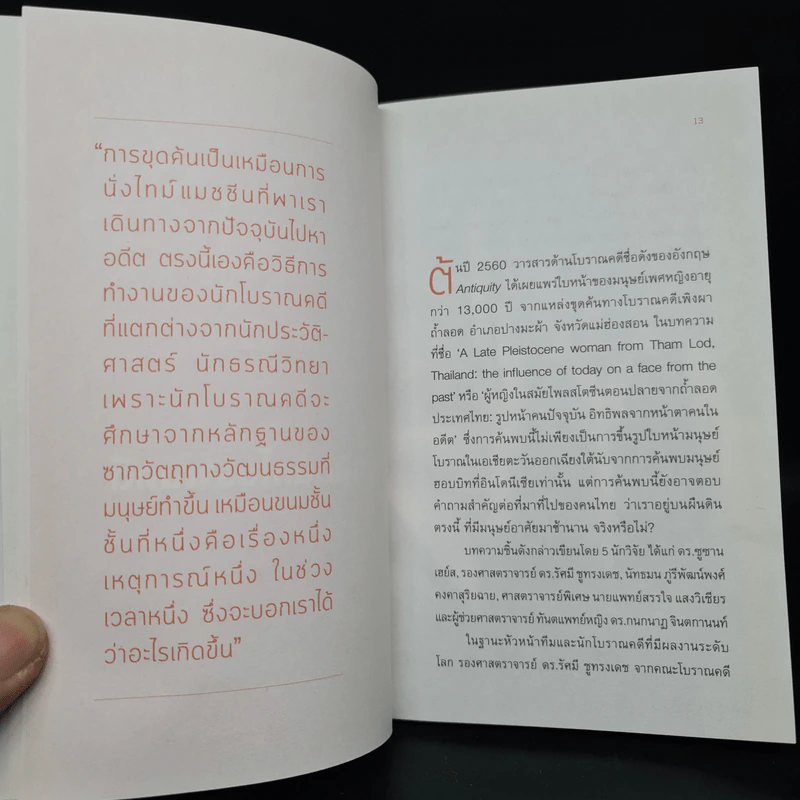 “การขุดค้นเป็นเหมือนการ
นั่งไทม์แมชชีนที่พาเรา
เดินทางจากปัจจุบันไปหา
อดีต ตรงนี้เองคือวิธีการ
ทำงานของนักโบราณคดี
ที่แตกต่างจากนักประวัติ-
ศาสตร์ นักธรณีวิทยา
เพราะนักโบราณคดีจะ
ศึกษาจากหลักฐานของ
ซากวัตถุทางวัฒนธรรมที่
มนุษย์ทำขึ้น เหมือนขนมชั้น
ชั้นที่หนึ่งคือเรื่องหนึ่ง
เหตุการณ์หนึ่ง ในช่วง
เวลาหนึ่ง ซึ่งจะบอกเราได้
ว่าอะไรเกิดขึ้น”
13
ต้นปี 2560 วารสารด้านโบราณคดีชื่อดังของอังกฤษ
Antiquity ได้เผยแพร่ใบหน้าของมนุษย์เพศหญิงอายุ
กว่า 13,000 ปี จากแหล่งขุดค้นทางโบราณคดีเพิงผา
ถ้ำลอด อำเภอปางมะผ้า จังหวัดแม่ฮ่องสอน ในบทความ
ที่ชื่อ ‘A Late Pleistocene woman from Tham Lod,
Thailand: the influence of today on a face from the
past’ หรือ ‘ผู้หญิงในสมัยไพลสโตซีนตอนปลายจากถ้ำลอด
ประเทศไทย: รูปหน้าคนปัจจุบัน อิทธิพลจากหน้าตาคนใน
อดีต’ ซึ่งการค้นพบนี้ไม่เพียงเป็นการขึ้นรูปใบหน้ามนุษย์
โบราณในเอเชียตะวันออกเฉียงใต้นับจากการค้นพบมนุษย์
ฮอบบิทที่อินโดนีเซียเท่านั้น แต่การค้นพบนี้ยังอาจตอบ
คำถามสำคัญต่อที่มาที่ไปของคนไทย ว่าเราอยู่บนผืนดิน
ตรงนี้ ที่มีมนุษย์อาศัยมาช้านาน จริงหรือไม่?
บทความชิ้นดังกล่าวเขียนโดย 5 นักวิจัย ได้แก่ ดร.ซูซาน
เฮย์ส, รองศาสตราจารย์ ดร.รัศมี ชูทรงเดช, นัทธมน ภู่รีพัฒน์พงศ์
คงคาสุริยฉาย, ศาสตราจารย์พิเศษ นายแพทย์สรรใจ แสงวิเชียร
และผู้ช่วยศาสตราจารย์ ทันตแพทย์หญิง ดร.กนกนาฏ จินตกานนท์
ในฐานะหัวหน้าทีมและนักโบราณคดีที่มีผลงานระดับ
โลก รองศาสตราจารย์ ดร.รัศมี ชูทรงเดช จากคณะโบราณคดี